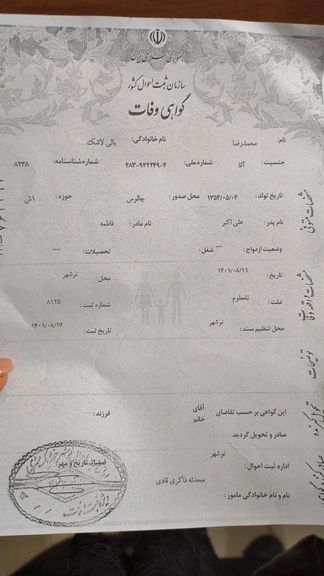 جمهوری اسلامی ایران
سازمان ثبت احوال کشور
گواهی وفات
نام: محمدرضا نام خانوادگی: بالی لاشک
جنسیت: آقا شماره ملی: ۴۸۳-۹۴۲۲۴۹-۴ شماره شناسنامه: ۸۲۳۸
تاریخ تولد: ۱۳۵۴/۰۵/۰۴ محل صدور: چالوس حوزه: ۱ش
نام پدر: علی اکبر نام مادر: فاطمه
وضعیت ازدواج: شغل: تحصیلات:
مشخصات متوفی
تاریخ: ۱۴۰۱/۰۸/۱۱ محل: نوشهر
علت: نامعلوم شماره ثبت: ۸۱۲۵
محل تنظیم سند: نوشهر تاریخ ثبت: ۱۴۰۱/۰۸/۱۷
مشخصات واقعه وفات
توضیحات
این گواهی بر حسب تقاضای آقای خانم فرزند:
صادر و تحویل گردید.
اداره ثبت احوال: نوشهر
نام و نام خانوادگی مامور: محدثه ذاکری قادی
امضاء، تاریخ و مهر: